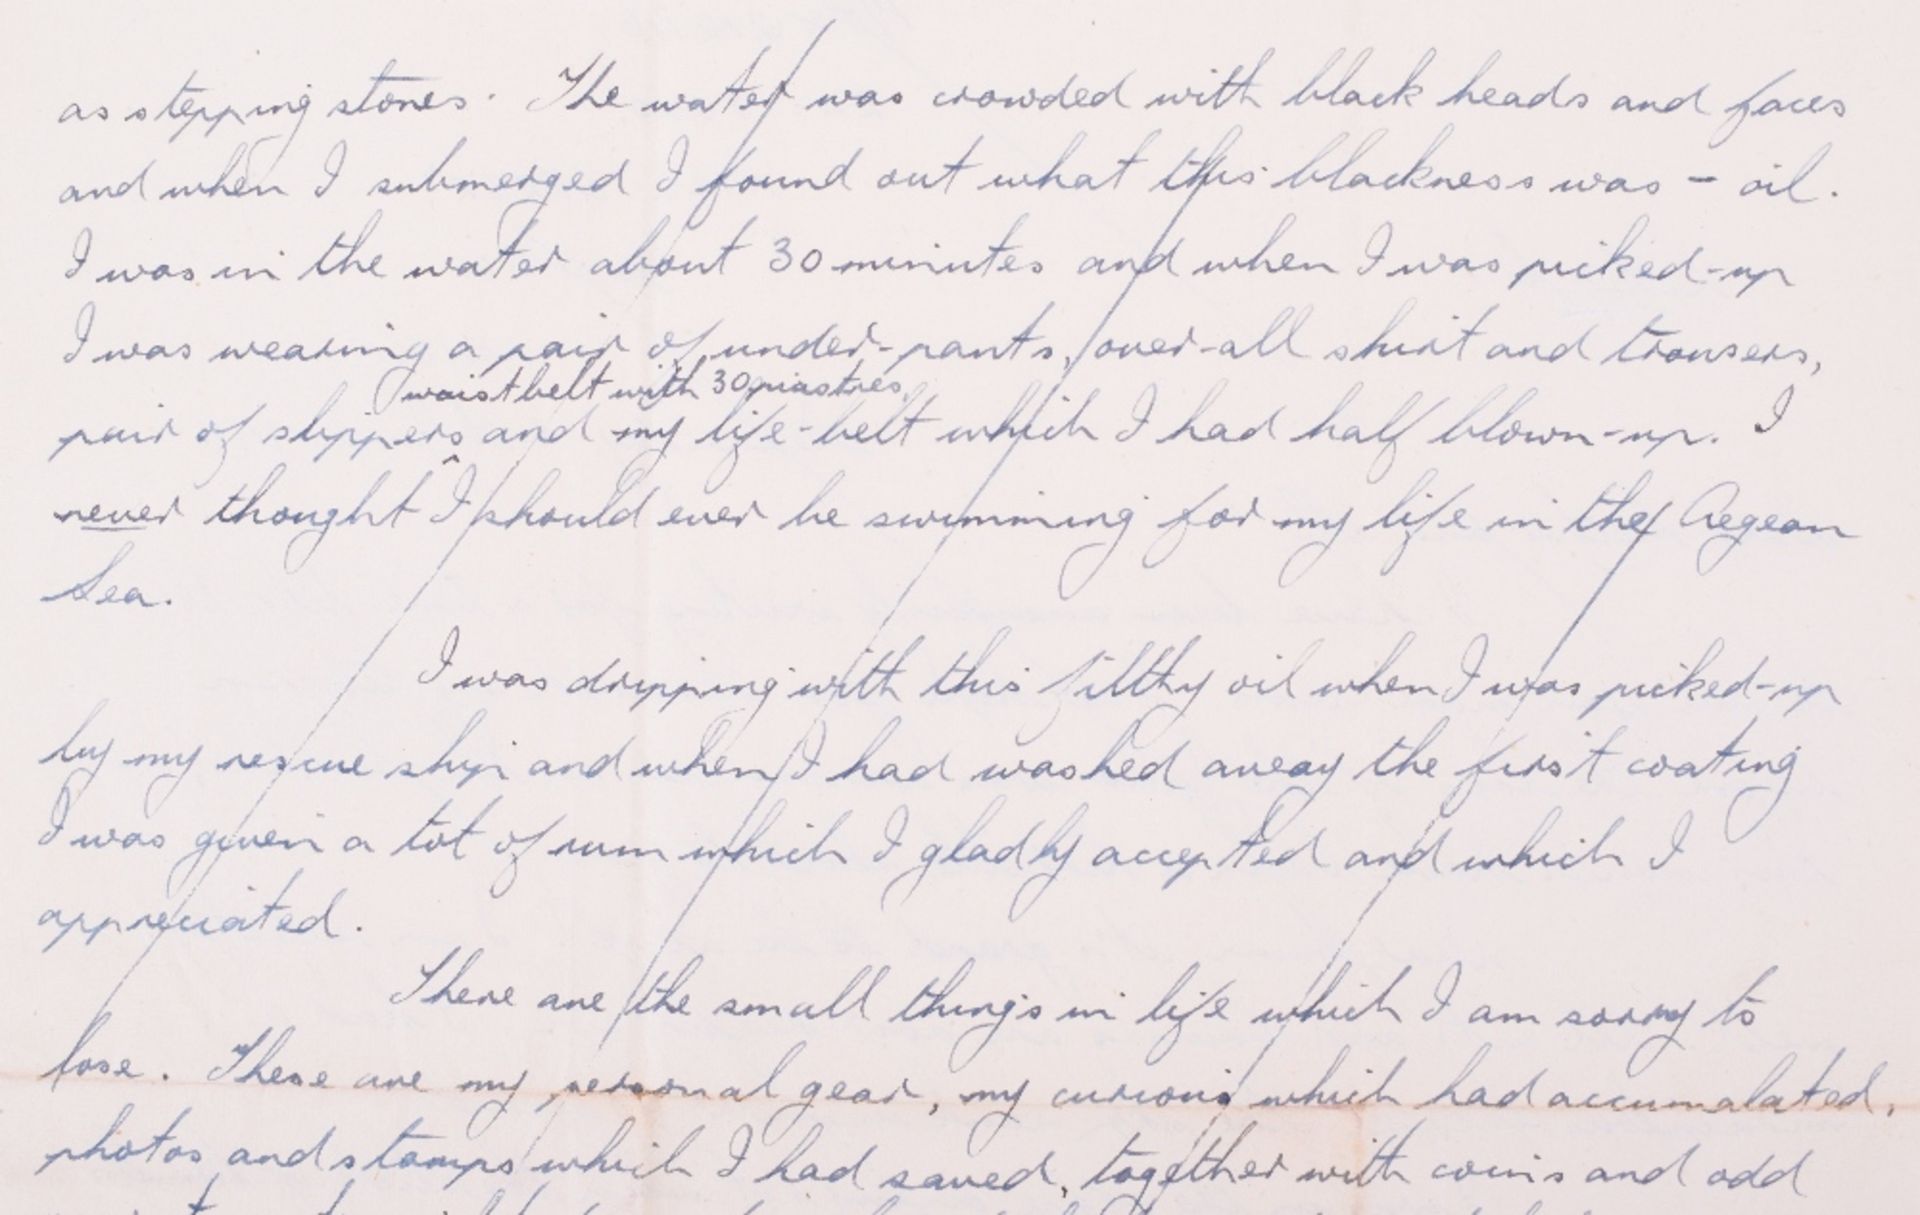 as stepping stones. The water was crowded with black heads and faces
and when I submerged I found out what this blackness was - oil.
I was in the water about 30 minutes and when I was picked-up
I was wearing a pair of under-pants, over-all shirt and trousers,
waist belt with 30 piastres,
pair of slippers ^ and my life-belt which I had half blown-up. I
never thought I should ever be swimming for my life in the Aegean
Sea.
I was dripping with this filthy oil when I was picked-up
by my rescue ship and when I had washed away the first coating
I was given a tot of rum which I gladly accepted and which I
appreciated.
There are the small things in life which I am sorry to
lose. These are my personal gear, my curious which had accumalated,
photos and stamps which I had saved, together with coins and odd